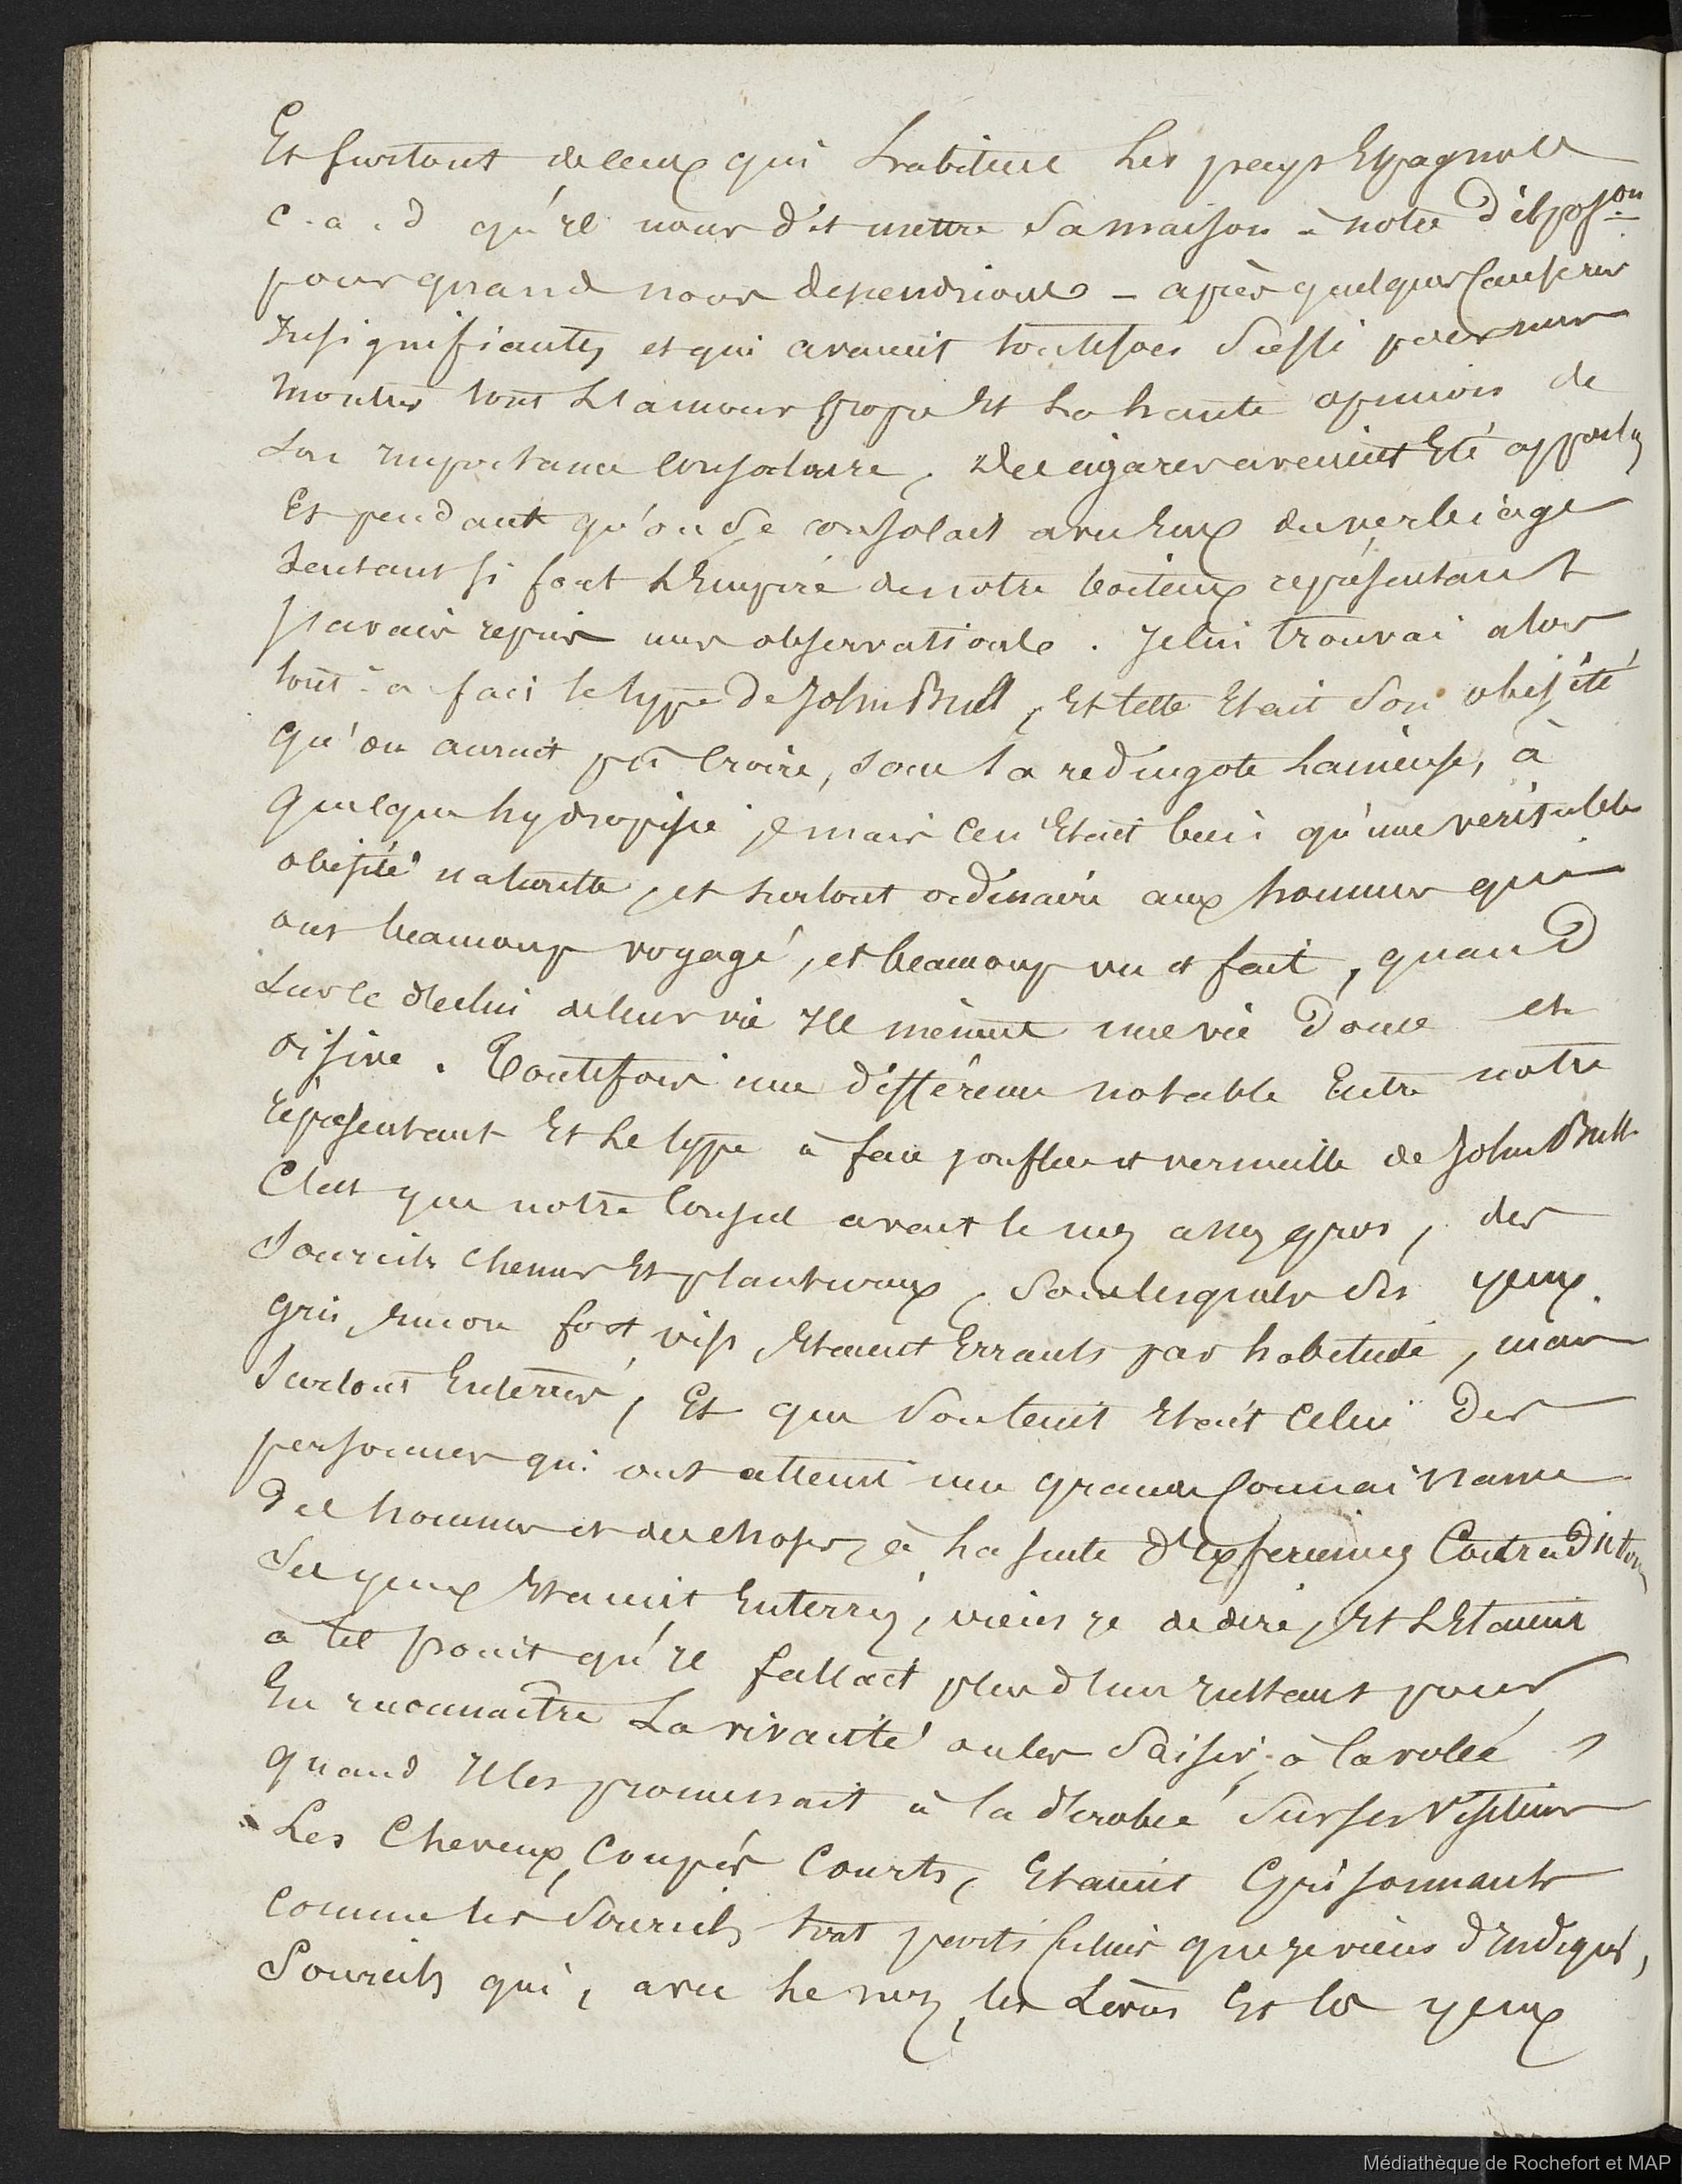 Et surtout de ceux qui habitent les pays Espagnols
c. a. d qu'il nous dit mettre sa maison à notre disposon
pour quand nous descendrions – après quelques causeries
insignifiantes et qui avaient toutefois suffi pour nous
montrer tout l'amour propre et la haute opinion de
son importance consulaire, des cigares avaient été apportés
Et pendant qu'on se consolait avec eux du verbiage
sentant si fort l'Empire de notre boiteux représentant
j'avais repris mes observations. Je lui trouvai alors
tout-à-fait le type de John Bull, et telle était son obésité
qu'on aurait pu croire, sous la redingote laineuse, à
quelque hydropisie, mais ce n'était bien qu'une véritable
obésité naturelle, et surtout ordinaire aux hommes qui
ont beaucoup voyagé, et beaucoup vu et fait, quand
sur le déclin de leur vie ils mènent une vie douce et
oisive. Toutefois une différence notable entre notre
représentant et le type à face joufflue et vermeille de John Bull
C'est que notre Consul avait le nez assez gros, des
sourcils chenus et plantureux, sous lesquels des yeux
gris, encore fort vifs étaient errants par habitude, mais
surtout enterrés, Et que son teint était celui des
personnes qui ont atteint une grande connaissance
des hommes et des choses, à la suite d'expériences
Ses yeux étaient enterrés, viens-je de dire, et l'étaient
à tel point qu'il fallait plus d'un instant pour
en reconnaître la vivacité ou les saisir à la volée
quand il les promenait à la dérobée sur ses visiteurs
Les cheveux, coupés courts, étaient grisonnants
comme les sourcils que je viens d'indiquer,
Sourcils qui, avec le nez, les lèvres et les yeux
Médiathèque de Rochefort et MAP